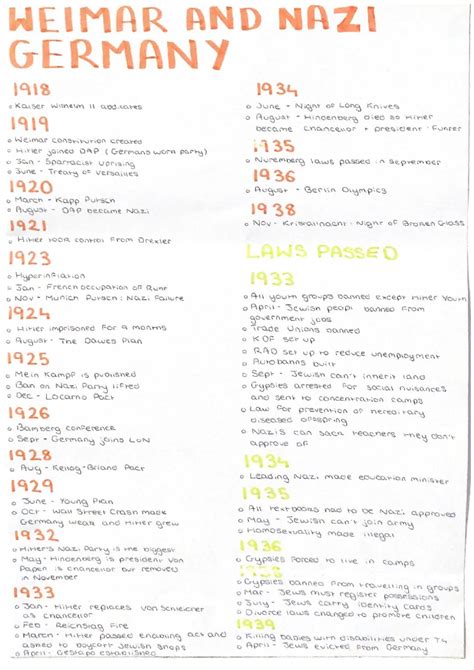 WEIMAR AND NAZI
GERMANY
1918
Kaiser Wilhelm II abdicates
1919
Weimar constitution created
Hitler joined DAP (Germans worn party)
Jan - Sparracist Uprising
June - Treaty of Versailles
1920
March - Kapp Putsch
August - DAP became Nazi
1921
Hitler took control from Drexler
1923
Hyperinflation
Jan - French occupation of Ruhr
Nov - Munich Putsch: Nazi Failure
1924
Hitler imprisoned for 9 months
August - The Dawes Plan
1925
Mein Kampf is published
Ban on Nazi Party lifted
Dec - Locarno Pact
1926
Bamberg conference
Sept - Germany joins LON
1928
Aug - Kellog-Briand Pact
1929
June - Young Plan
Oct - Wall Street Crash made
Germany weak and Hitler grew
1932
Hitler's Nazi Party is the biggest
May - Hindenberg is president Von
Papen is chancellor but removed
in November
1933
Jan - Hitler replaces Von Schleicher
as chancellor
Feb - Reichstag Fire
March - Hitler passed enabling act and
asked to boycott Jewish shops
April - Gestapo established
1934
June - Night of Long Knives
August - Hindenberg died so Hitler
became chancellor + president - Fuhrer
1935
Nuremberg laws passed in september
1936
August - Berlin Olympics
1938
Nov - Kristallnacht - Night of Broken Glass
LAWS PASSED
1933
All youth groups banned except Hitler Youth
April - Jewish people banned from
government jobs
Trade Unions banned
KDF set up
RAD set up to reduce unemployment
Autobahns built
Sept - Jewish can't inherit land
Gypsies arrested for social nuisances
and sent to concentration camps
Law for prevention of hereditary
diseased offspring
Nazis can sack teachers they don't
approve of
1934
Leading Nazi made education minister
1935
All textbooks had to be Nazi approved
May - Jewish can't join army
Homosexuality made illegal
1936
Gypsies forced to live in camps
1938
Gypsies banned from travelling in groups
Mar - Jews must register possessions
July - Jews carry identity cards
Divorce laws changed to promote children
1939
Killing babies with disabilities under T4
Jews evicted from Germany